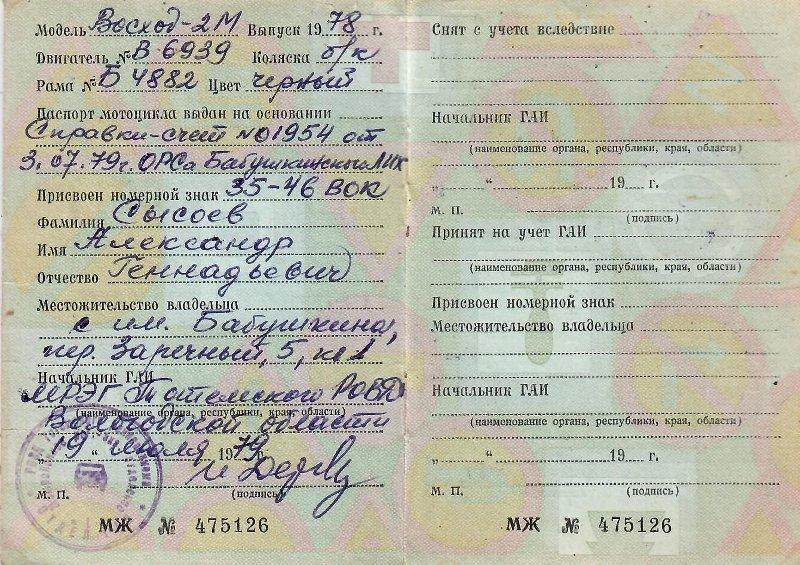 Модель Восход-2М Выпуск 1978 г.
Двигатель № В 6939 Коляска б/к
Рама № Б 4882 Цвет черный
Паспорт мотоцикла выдан на основании
Справки-счет №01954 от
3.07.79г. ОРСа Бабушкинского ЛПХ
Присвоен номерной знак 35-46 ВОК
Фамилия Сысоев
Имя Александр
Отчество Геннадьевич
Местожительство владельца
с им. Бабушкина,
пер. Заречный, 5, кв 1
Начальник ГАИ
МРЭГ Тотемского РОВД
(наименование органа, республики, края, области)
Вологодской области
„19" июля 1979 г.
М. П. (подпись)
МЖ № 475126
Снят с учета вследствие
Начальник ГАИ
(наименование органа, республики, края, области)
„ “ 19 г.
М. П.
(подпись)
Принят на учет ГАИ
(наименование органа, республики, края, области)
Присвоен номерной знак
Местожительство владельца
Начальник ГАИ
(наименование органа, республики, края, области)
„ “ 19 г.
М. П. (подпись)
МЖ № 475126